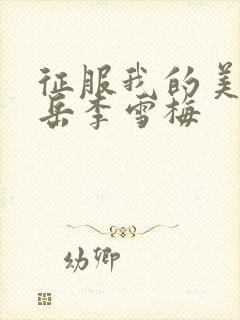 征服我的美
岳李雪梅
幼卿